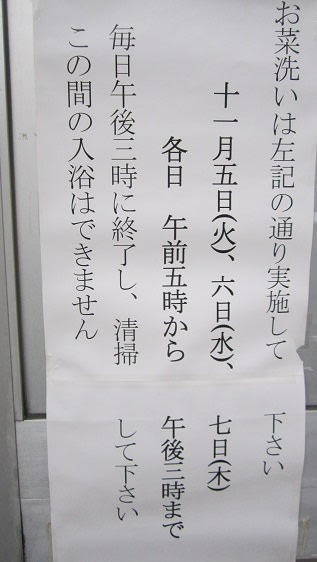 お菜洗いは左記の通り実施して下さい
十一月五日(火)、六日(水)、七日(木)
各日　午前五時から午後三時まで
毎日午後三時に終了し、清掃して下さい
この間の入浴はできません